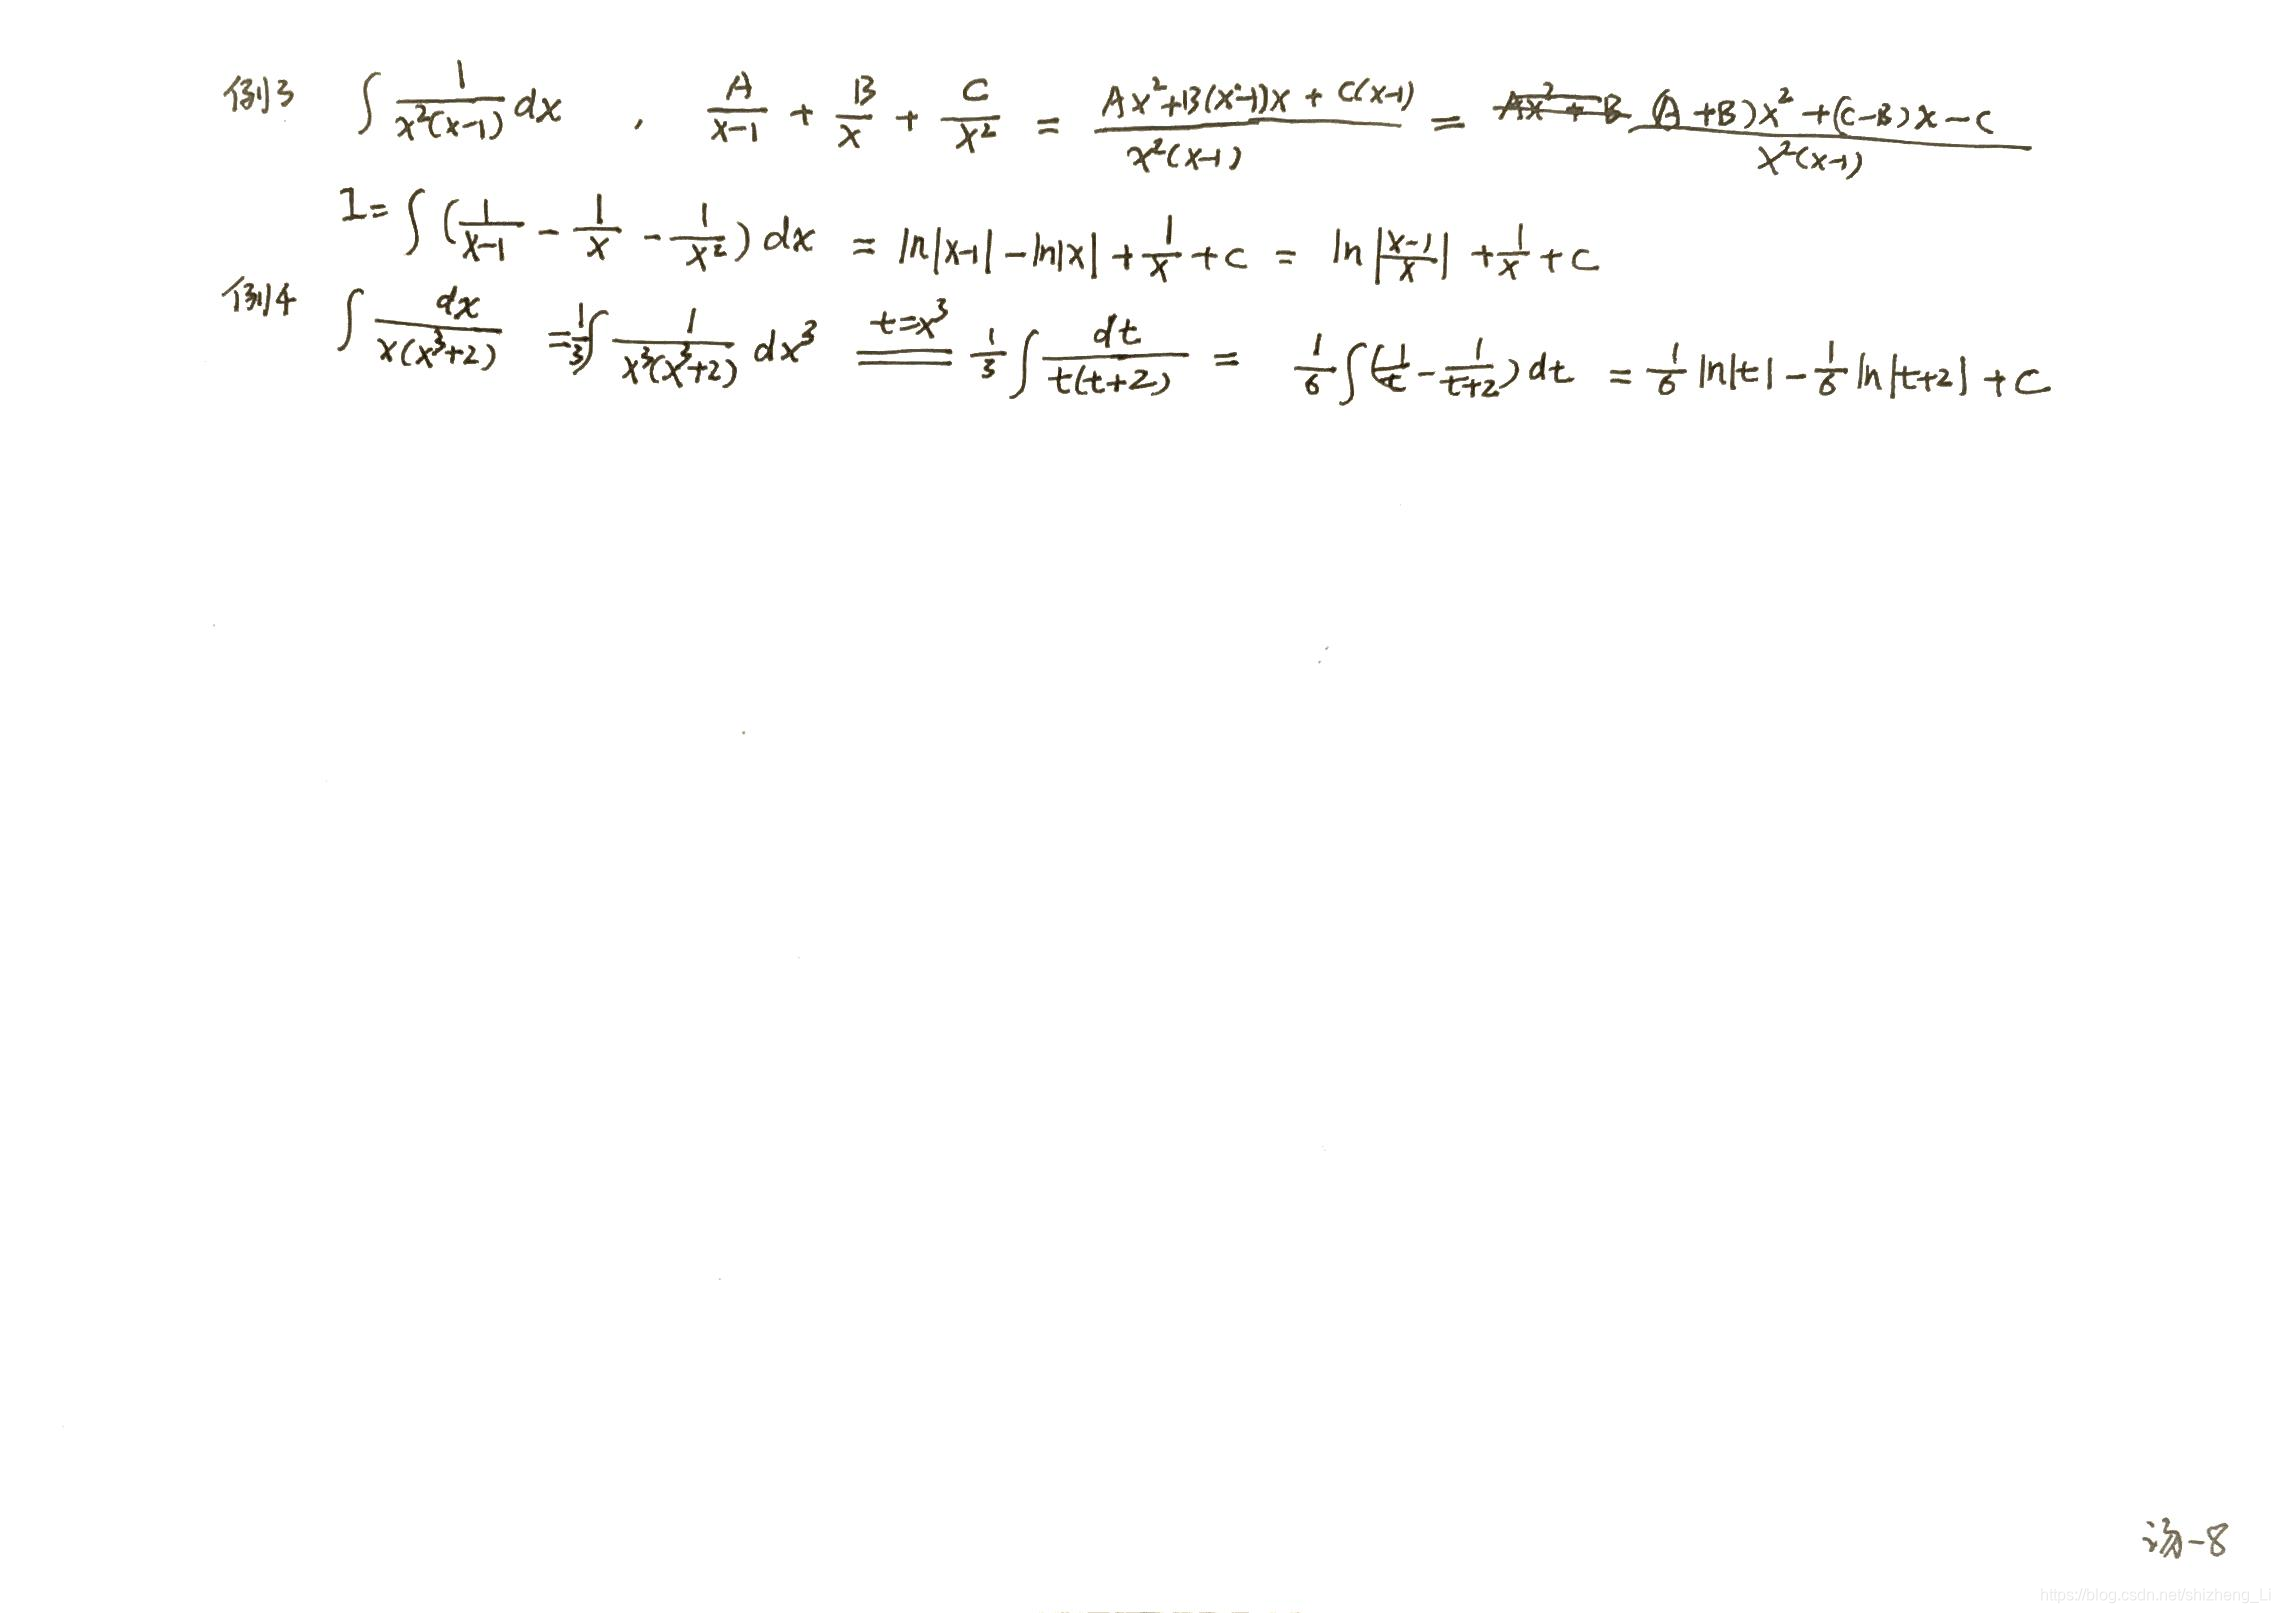 例3 ∫ 1/(x²(x-1)) dx , A/(x-1) + B/x + C/x² = (Ax²+B(x-1)x + C(x-1))/(x²(x-1)) = ((A+B)x²+(C-B)x-C)/(x²(x-1))
I= ∫ (1/(x-1) - 1/x - 1/x²) dx = ln|x-1| - ln|x| + 1/x + C = ln|(x-1)/x| + 1/x + C
例4 ∫ dx/(x(x³+2)) = 1/3 ∫ 1/(x³(x³+2)) dx³ t=x³ 1/3 ∫ dt/(t(t+2)) = 1/6 ∫ (1/t - 1/(t+2)) dt = 1/6 ln|t| - 1/6 ln|t+2| + C
汤-8
https://blog.csdn.net/shizheng_Li